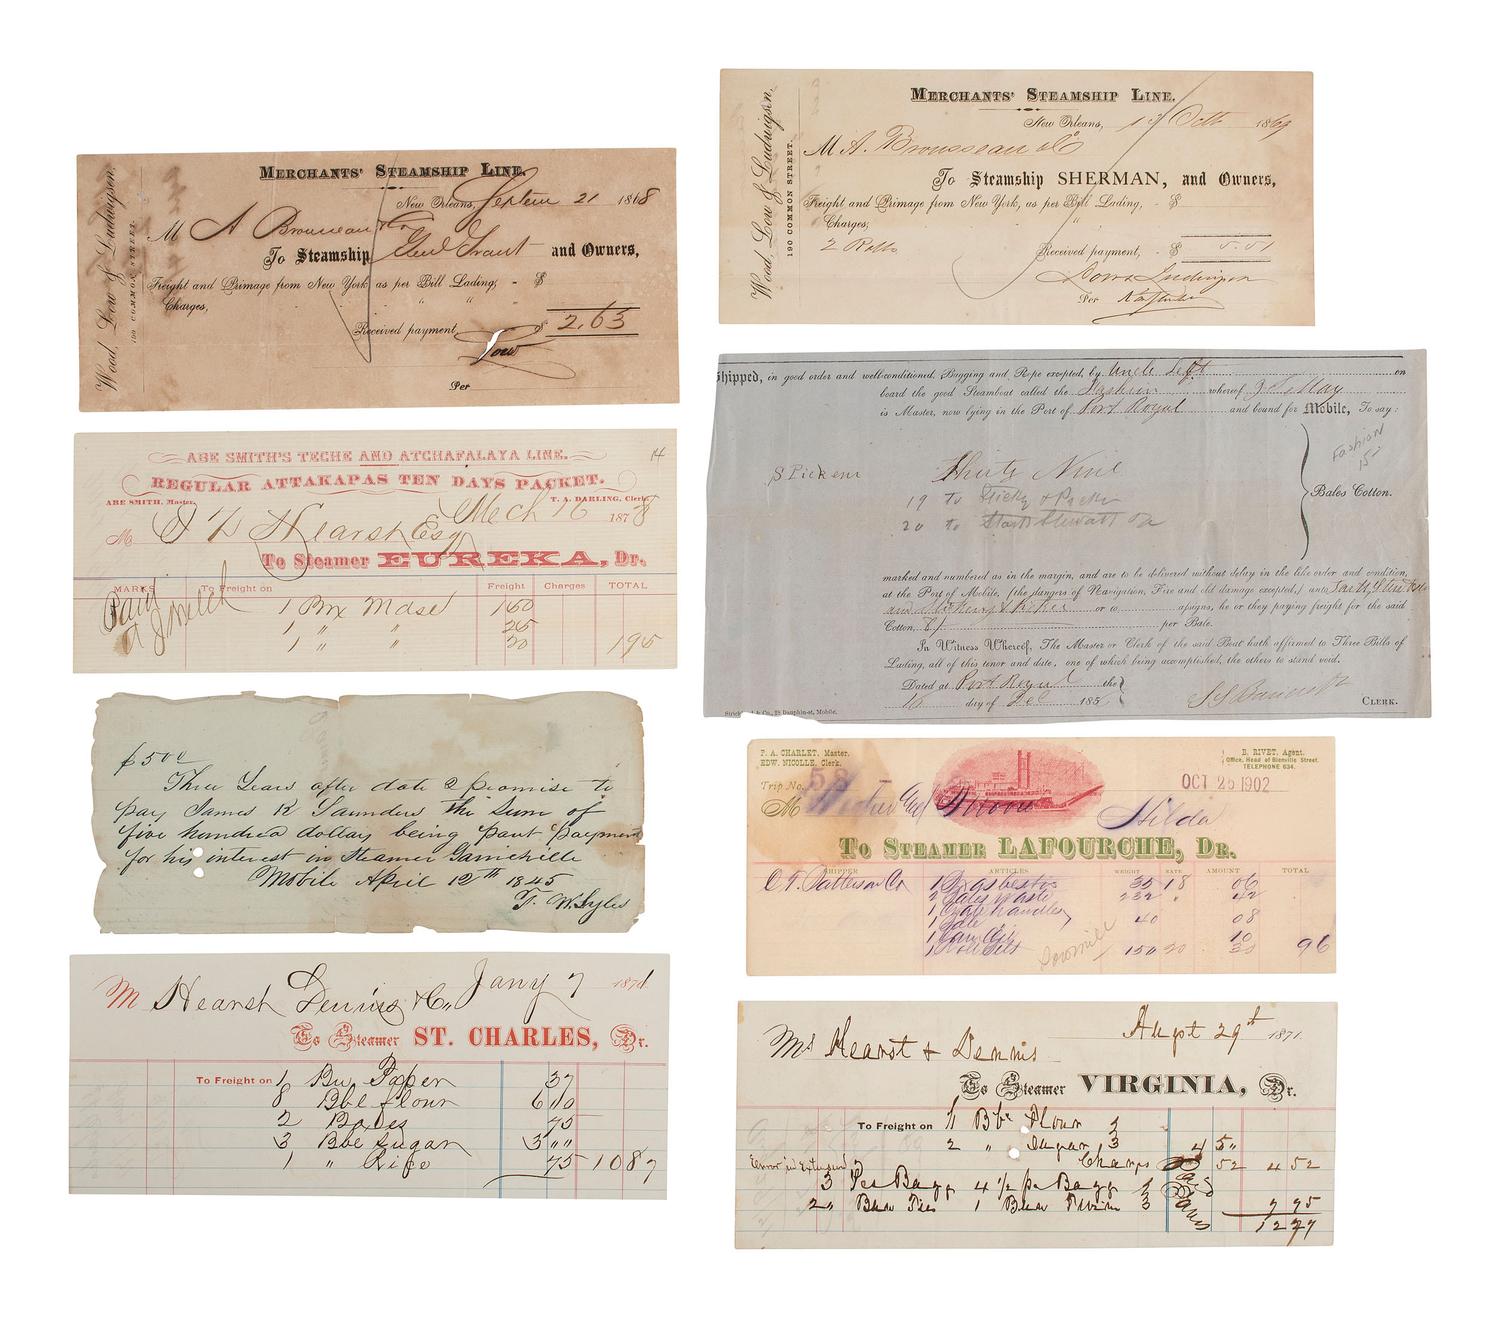 MERCHANTS' STEAMSHIP LINE.
Wood, Low & Ludwigsen,
190 COMMON STREET.
New Orleans, Septem 21 1868
M A Brousseau & Co
To Steamship Genl Grant and Owners,
Freight and Primage from New York as per Bill Lading, - $
Charges, " "
Received payment, $ 2.63
Per
ABE SMITH'S TECHE AND ATCHAFALAYA LINE.
14
REGULAR ATTAKAPAS TEN DAYS PACKET.
ABE SMITH, Master. T. A. DARLING, Clerk.
Mch 16 1878
M Hearsh Esq
To Steamer EUREKA, Dr.
MARKS To Freight on Freight Charges TOTAL
1 Bx Mdse 1 60
1 " "
1 " " 1 95
$500
Three Years after date I promise to
pay James K Saunders the sum of
five hundred dollars being part payment
for his interest in Steamer Gainesville
Mobile April 12th 1845
T. W. Syles
M Hearsh Dennis & Co. Jany 7 187
To Steamer ST. CHARLES, Dr.
To Freight on 1 Bu Paper 37
8 Bbl flour 6 00
2 Boxes 75
3 Bbl Sugar 3 "
1 " Rice 75 10 87
MERCHANTS' STEAMSHIP LINE.
Wood, Low & Ludwigsen,
190 COMMON STREET.
New Orleans, 13 Octb 1869
M A. Brousseau & Co
To Steamship SHERMAN, and Owners,
Freight and Primage from New York, as per Bill Lading, - $
Charges, "
2 Rolls
Received payment, - $ 5.51
Low & Ludwigsen
Per
Shipped, in good order and well-conditioned, Bagging and Rope excepted, by Uncle Left on
board the good Steamboat called the Fashion whereof J S May
is Master, now lying in the Port of Port Royal and bound for Mobile, To say:
S Pickens Thirty Nine
19 To
20 to Stewart
Bales Cotton.
Fashion
marked and numbered as in the margin, and are to be delivered without delay in the like order and condition,
at the Port of Mobile, (the dangers of Navigation, Fire and old damage excepted,) unto
and or to assigns, he or they paying freight for the said
Cotton, per Bale.
In Witness Whereof, The Master or Clerk of the said Boat hath affirmed to Three Bills of
Lading, all of this tenor and date, one of which being accomplished, the others to stand void.
Dated at Port Royal the
16 day of Dec 185
CLERK.
& Co., 28 Dauphin-st, Mobile.
P. A. CHARLET, Master.
EDW. NICOLLE, Clerk.
B. RIVET, Agent.
Office, Head of Bienville Street.
TELEPHONE 634.
Trip No. 58
OCT 25 1902
M Moore Hilda
To STEAMER LAFOURCHE, DR.
SHIPPER ARTICLES WEIGHT RATE AMOUNT TOTAL
C. T. Patterson Co 1 Bx asbestos 35 18 06
2 Bales Waste 232 " 42
1 Crate handles
40 08
10
1 Roll Belt 150 20 30 96
Ms Hearst & Dennis
Augst 29th 1871
To Steamer VIRGINIA, Dr.
To Freight on 11 Bbl Flour
2 " Sugar 3 4 5 "
Charges 52 4 52
Error in Extension
3 Pcs Bagg 4 1/2 pc Bagg
1 Twine
7 95
12 47